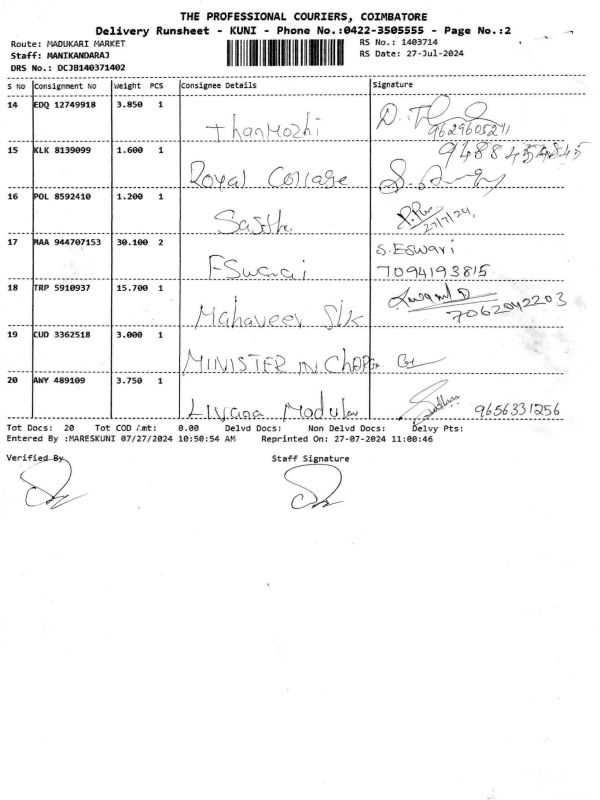 THE PROFESSIONAL COURIERS, COIMBATORE
Delivery Runsheet - KUNI - Phone No.:0422-3505555 - Page No.:2
Route: MADUKARI MARKET
RS No.: 1403714
Staff: MANIKANDARAJ
RS Date: 27-Jul-2024
DRS No.: DCJB140371402
S No Consignment No Weight PCS Consignee Details Signature
14 EDQ 12749918 3.850 1 ThanMozhi
9629605271
15 KLK 8139099 1.600 1 Royal College
9488454845
16 POL 8592410 1.200 1
27/7/24,
17 MAA 944707153 30.100 2 ESwarai S.Eswari
7094193815
18 TRP 5910937 15.700 1 Mahaveer Slk
7062042203
19 CUD 3362518 3.000 1 MINISTER IN
20 ANY 489109 3.750 1 Livana Modular 9656331256
Tot Docs: 20 Tot COD Amt: 0.00 Delvd Docs: Non Delvd Docs: Delvy Pts:
Entered By :MARESKUNI 07/27/2024 10:50:54 AM Reprinted On: 27-07-2024 11:00:46
Verified By Staff Signature